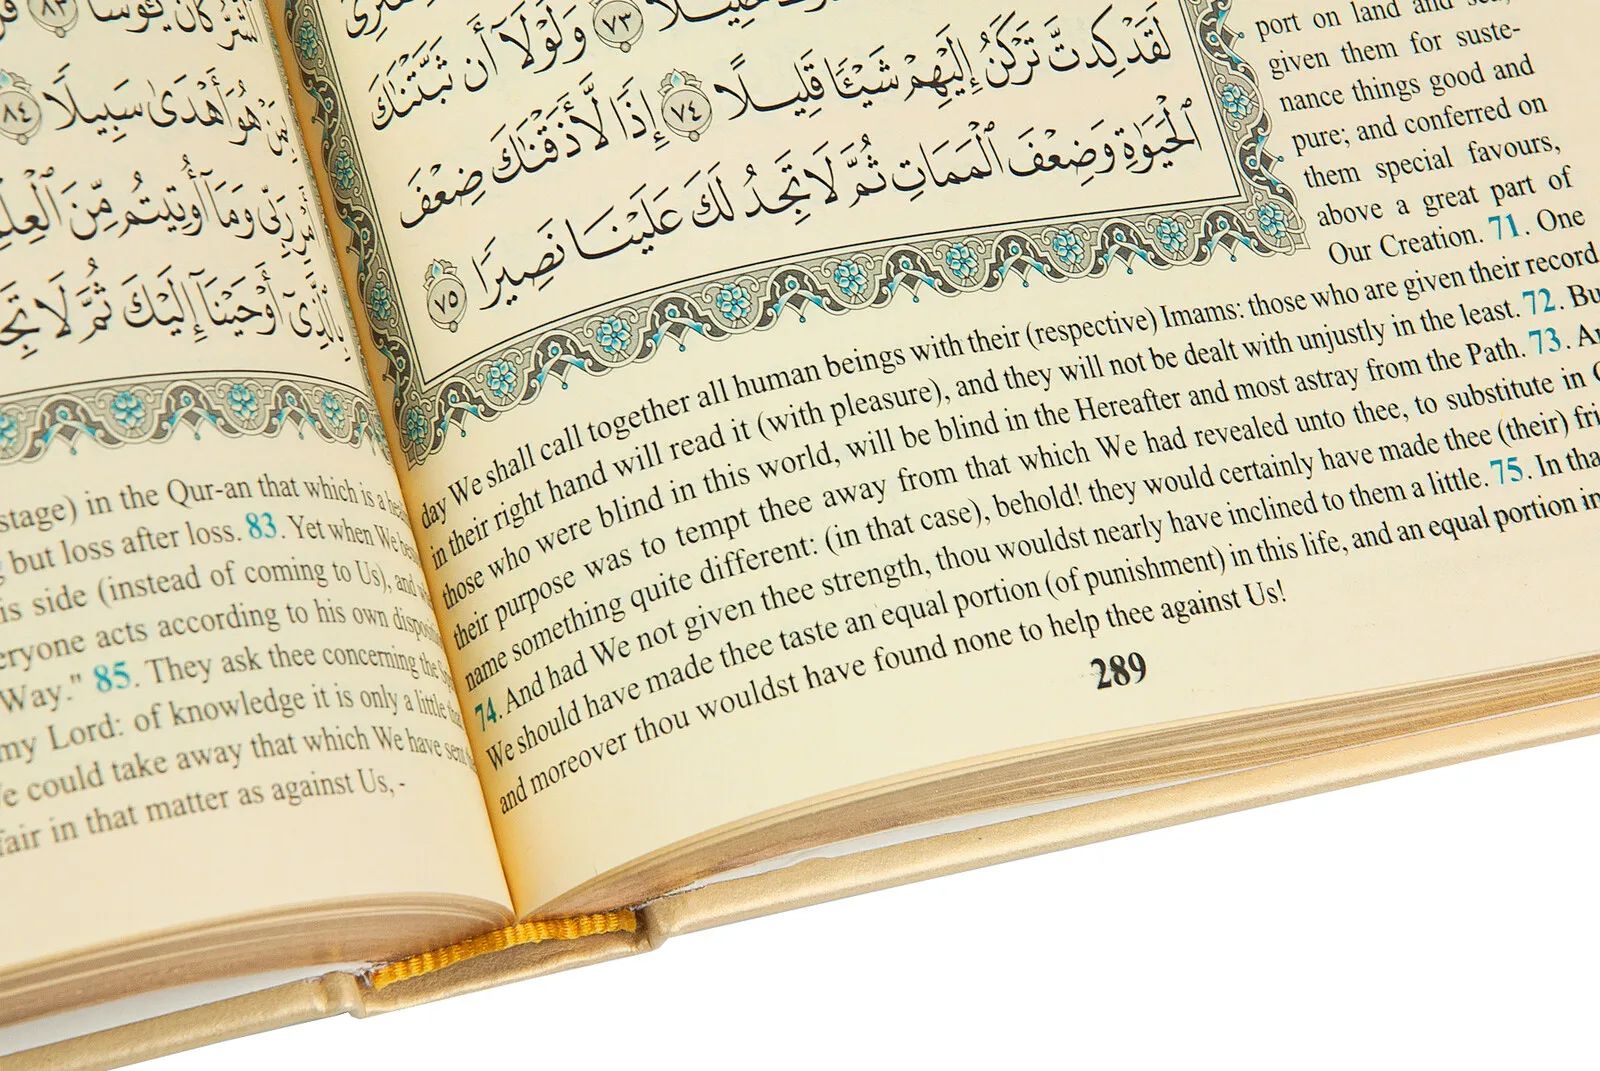 كَانَ يَـُٔوسًا ٨٣
مَنْ هُوَ أَهْدَىٰ سَبِيلًا ٨٤
رَبِّي وَمَآ أُوتِيتُم مِّنَ ٱلْعِلْمِ
بِٱلَّذِىٓ أَوْحَيْنَآ إِلَيْكَ ثُمَّ لَا
stage) in the Qur-an that which is a
but loss after loss. 83. Yet when We
side (instead of coming to Us), and
acts according to his own
Way." 85. They ask thee concerning the
my Lord: of knowledge it is only a little
could take away that which We have sent
fair in that matter as against Us, -
٧٣ وَلَوْلَآ أَن ثَبَّتْنَٰكَ
لَقَدْ كِدتَّ تَرْكَنُ إِلَيْهِمْ شَيْـًٔا قَلِيلًا ٧٤ إِذًا لَّأَذَقْنَٰكَ ضِعْفَ
ٱلْحَيَوٰةِ وَضِعْفَ ٱلْمَمَاتِ ثُمَّ لَا تَجِدُ لَكَ عَلَيْنَا نَصِيرًا ٧٥
port on land and sea,
given them for suste-
nance things good and
pure; and conferred on
them special favours,
above a great part of
Our Creation. 71. One
day We shall call together all human beings with their (respective) Imams: those who are given their record
in their right hand will read it (with pleasure), and they will not be dealt with unjustly in the least. 72.
those who were blind in this world, will be blind in the Hereafter and most astray from the Path. 73.
their purpose was to tempt thee away from that which We had revealed unto thee, to substitute in
name something quite different: (in that case), behold! they would certainly have made thee (their)
74. And had We not given thee strength, thou wouldst nearly have inclined to them a little. 75. In
We should have made thee taste an equal portion (of punishment) in this life, and an equal portion in
and moreover thou wouldst have found none to help thee against Us!
289